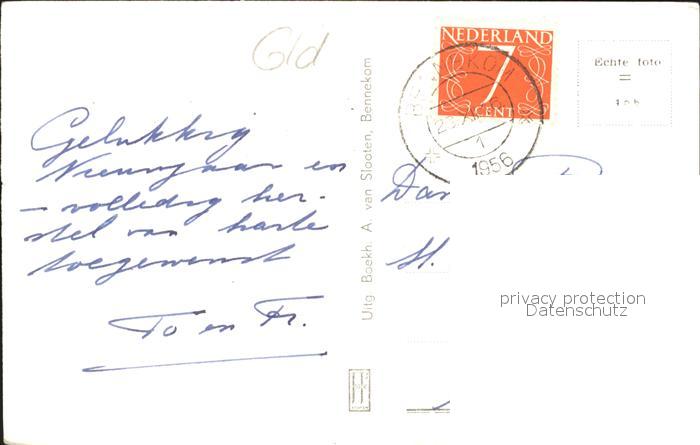 Gld
Gelukkig
Nieuwjaar en
– volledig her-
stel van harte
toegewenst
To en Fr.
Uitg. Boekh. A. van Slooten, Bennekom
NEDERLAND
7
CENT
1
1956
Echte foto
=
Dan
H.
privacy protection
Datenschutz